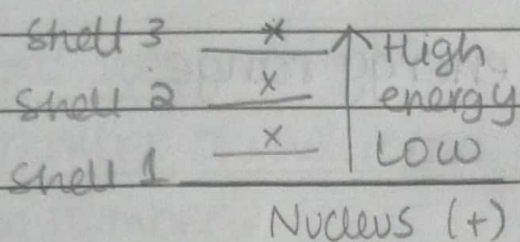 Shell 3 x High
Shell 2 x energy
Shell 1 x Low
Nucleus (+)